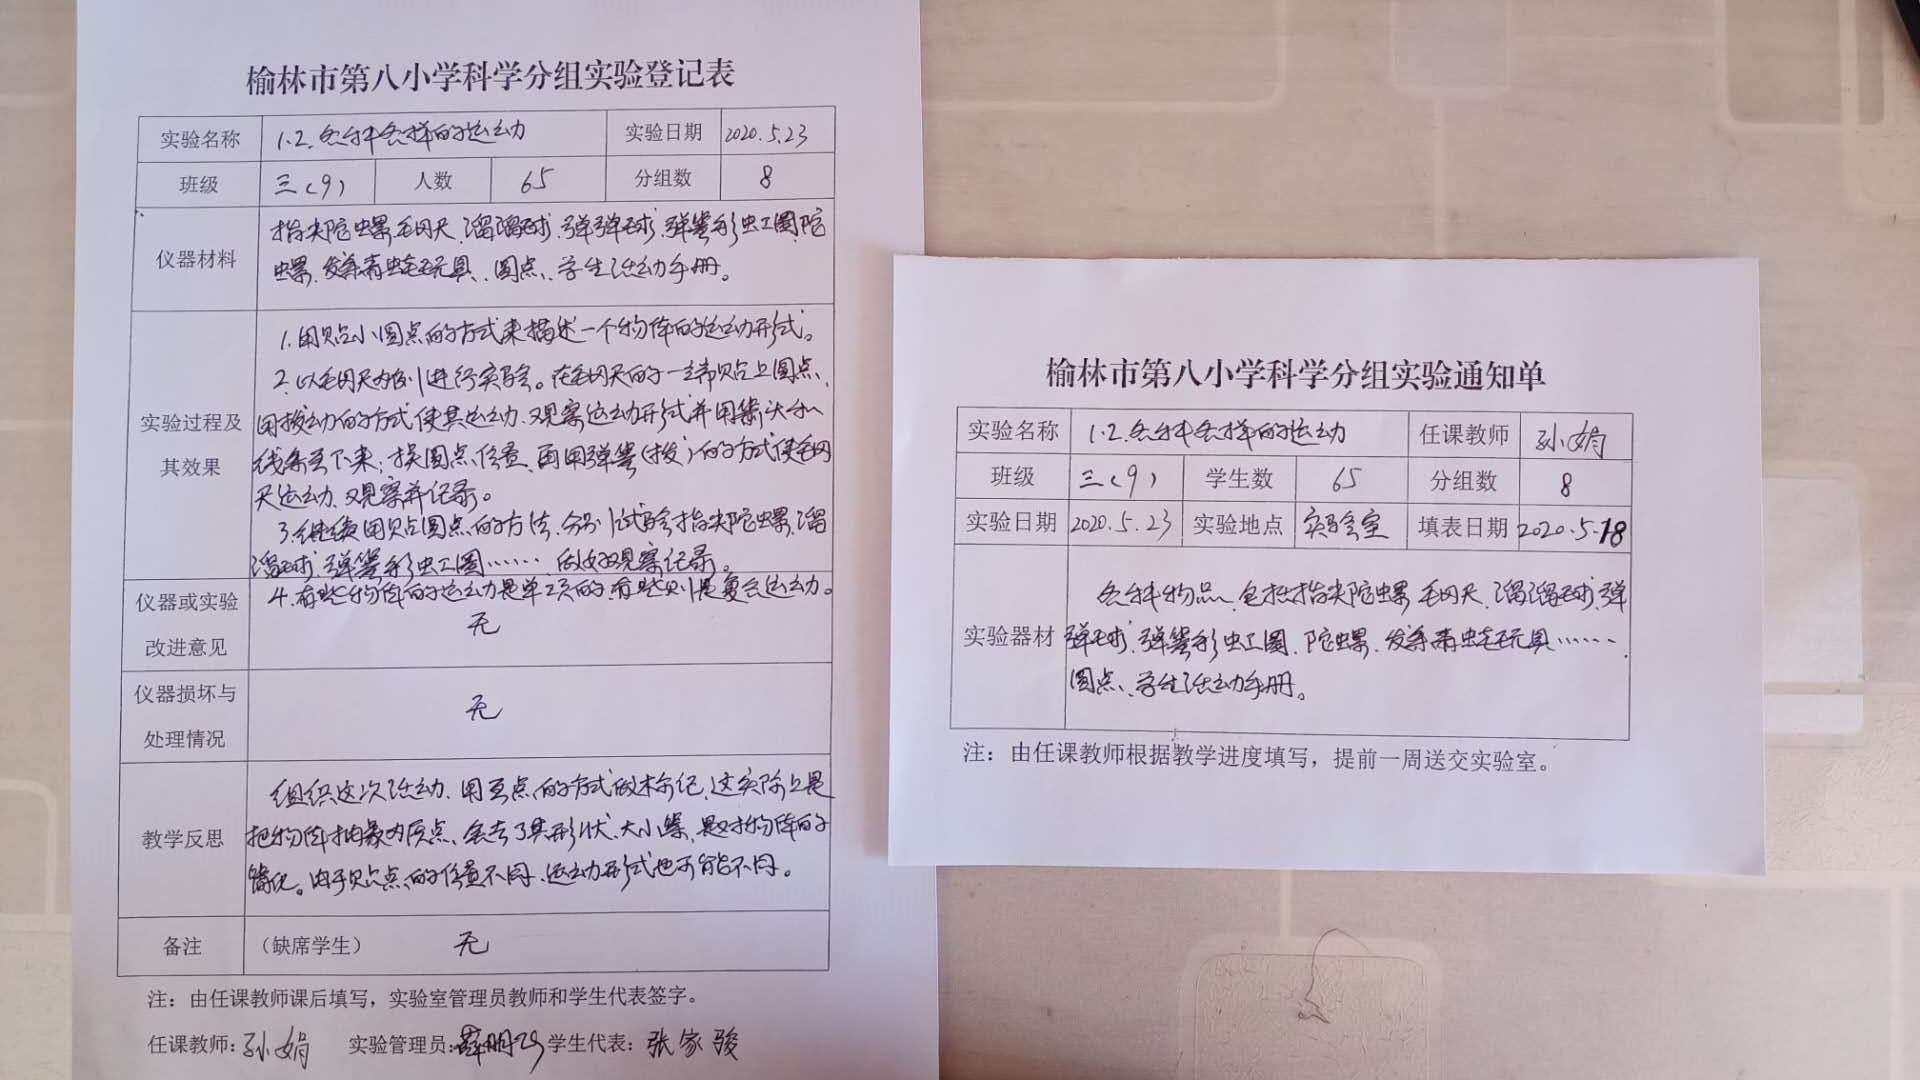 榆林市第八小学科学分组实验登记表
实验名称 1.2.各种各样的运动 实验日期 2020.5.23
班级 三(9) 人数 65 分组数 8
仪器材料
指尖陀螺、毛网天、溜溜球、弹弹球、弹簧形虫工圈、陀
螺、发条青蛙玩具、圆点、学生活动手册。
实验过程及
其效果
1.用贴小圆点的方式来描述一个物体的运动形式。
2.以毛网天为例进行实验。在毛网天的一端贴上圆点、
用拨动的方式使其运动、观察运动形式并用箭头和
线条画下来;换圆点位置、再用弹簧(拨)的方式使毛网
天运动、观察并记录。
3.继续用贴圆点的方法、分别试验指尖陀螺、溜
溜球、弹簧形虫工圈……做好观察记录。
4.有些物体的运动是单一的、有些则是复合运动。
仪器或实验
改进意见
无
仪器损坏与
处理情况
无
教学反思
组织这次活动、用画点的方式做标记、这实际上是
把物体抽象为质点、舍去了其形状、大小等、是对物体的
简化。由于贴点的位置不同、运动形式也可能不同。
备注 (缺席学生) 无
注:由任课教师课后填写,实验室管理员教师和学生代表签字。
任课教师:孙娟 实验管理员: 学生代表:张家骏
榆林市第八小学科学分组实验通知单
实验名称 1.2.各种各样的运动 任课教师 孙娟
班级 三(9) 学生数 65 分组数 8
实验日期 2020.5.23 实验地点 实验室 填表日期 2020.5.18
实验器材
各种物品、包括指尖陀螺、毛网天、溜溜球、弹
弹球、弹簧形虫工圈、陀螺、发条青蛙玩具……
圆点、学生活动手册。
注:由任课教师根据教学进度填写,提前一周送交实验室。